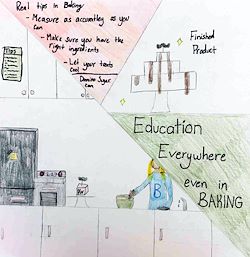 Real tips in Baking:
- Measure as accuratley as you can
- Make sure you have the right ingredients
- Let your treats cool
Domino Sugar can
Finished Product
Tips
Education
Everywhere
even in
BAKING
B